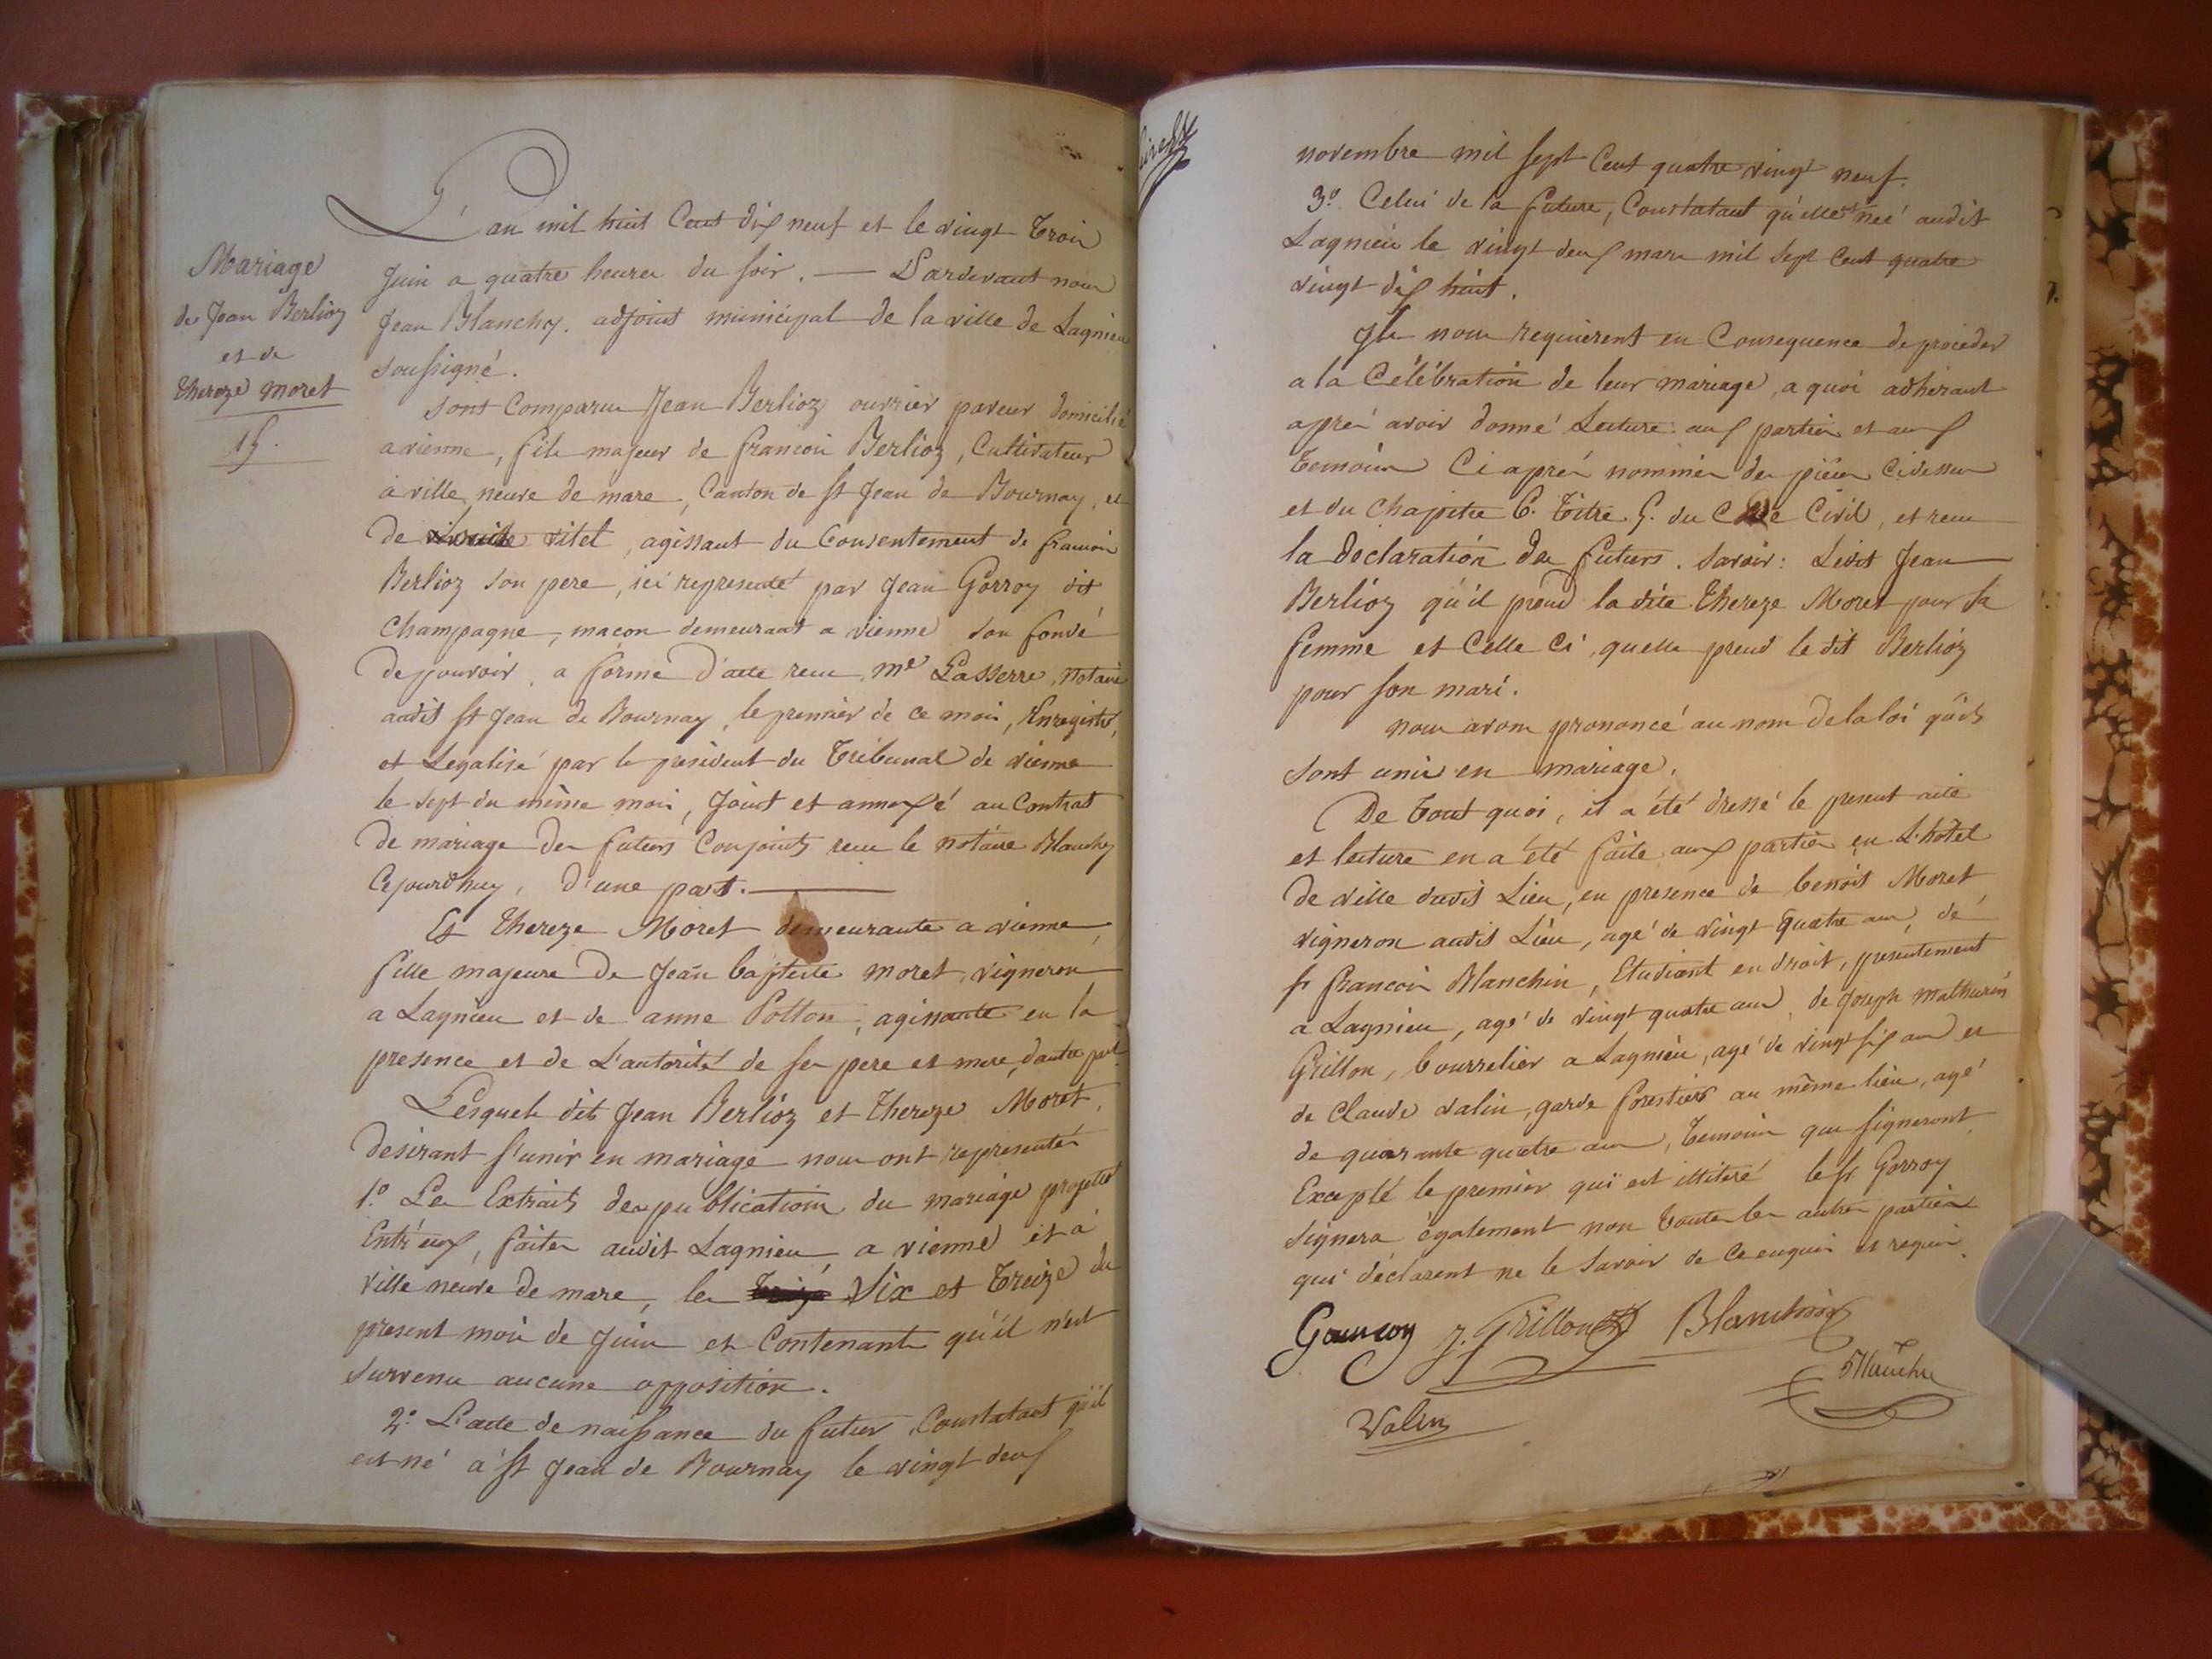 Mariage
de Jean Berlioz
et de
Thereze Moret
15.
L'an mil huit Cent dix neuf et le vingt trois
Juin a quatre heures du soir. — Pardevant nous
Jean Blanchy. adjoint municipal de la ville de Lagnieu
soussigné.
sont Comparus Jean Berlioz ouvrier paveur domicilié
a vienne, fils majeur de francois Berlioz, Cultivateur
à ville neuve de mare, Canton de St Jean de Bournay, et
de vitet, agissant du Consentement de francois
Berlioz son pere, ici representé par Jean Gorroy dit
Champagne, macon demeurant a vienne son fondé
de pouvoir, a forme d'acte recu me Lasserre, notaire
audit St Jean de Bournay, le premier de ce mois, Enregistré,
et Legalisé par le president du Tribunal de vienne
le sept du même mois, Joint et annexé au Contrat
de mariage des futurs Conjoints recu le notaire Blanchy
Cejourdhuy, d'une part. —
Et Thereze Moret demeurante a vienne,
fille majeure de Jean baptiste moret, vigneron
a Lagnieu et de anne Potton, agissante en la
presence et de L'autorité de ses pere et mere, dautre part
Lesquels dits Jean Berlioz et Thereze Moret,
desirant s'unir en mariage nous ont representés
1.o Les Extraits des publications du mariage projetté
Entr'eux, faites audit Lagnieu, a vienne et à
ville neuve de mare, les Six et Treize du
present mois de Juin et Contenants qu'il n'est
survenu aucune opposition.
2.o L'acte de naissance du futur, Constatant qu'il
est né à St Jean de Bournay le vingt deux
novembre mil sept Cent quatre vingt neuf.
3.o Celui de la future, Constatant qu'elle est née audit
Lagnieu le vingt deux mars mil sept Cent quatre
vingt dix huit.
Ils nous requierent en Consequence de procéder
a la Célébration de leur mariage, a quoi adhérant
aprés avoir donné Lecture aux parties et aux
temoins Ci aprés nommés des pièces Cidessus
et du Chapitre 6. Titre 5. du Code Civil, et recu
la declaration des futurs. Savoir: Ledit Jean
Berlioz qu'il prend la dite Thereze Moret pour sa
femme et Celle Ci, quelle prend le dit Berlioz
pour son mari.
nous avons prononcé au nom de la loi qu'ils
sont unis en mariage.
De tout quoi, il a été dressé le present acte
et lecture en a été faite aux parties en L'hôtel
de ville dudit Lieu, en presence de benoit Moret
vigneron audit Lieu, agé de vingt quatre ans, de
sr francois Blanchin, Etudiant en droit, presentement
a Lagnieu, agé de vingt quatre ans, de Joseph mathurin
Grillon, bourrelier a Lagnieu, agé de vingt six ans et
de Claude valin, garde forestier au même lieu, agé
de quarante quatre ans, temoins qui signeront,
Excepté le premier qui est illiteré le sr Gorroy
signera également non toutes les autres parties
qui déclarent ne le savoir de Ce enquis et requis.
J. Grillon Blanchin
Blanchy
Valin